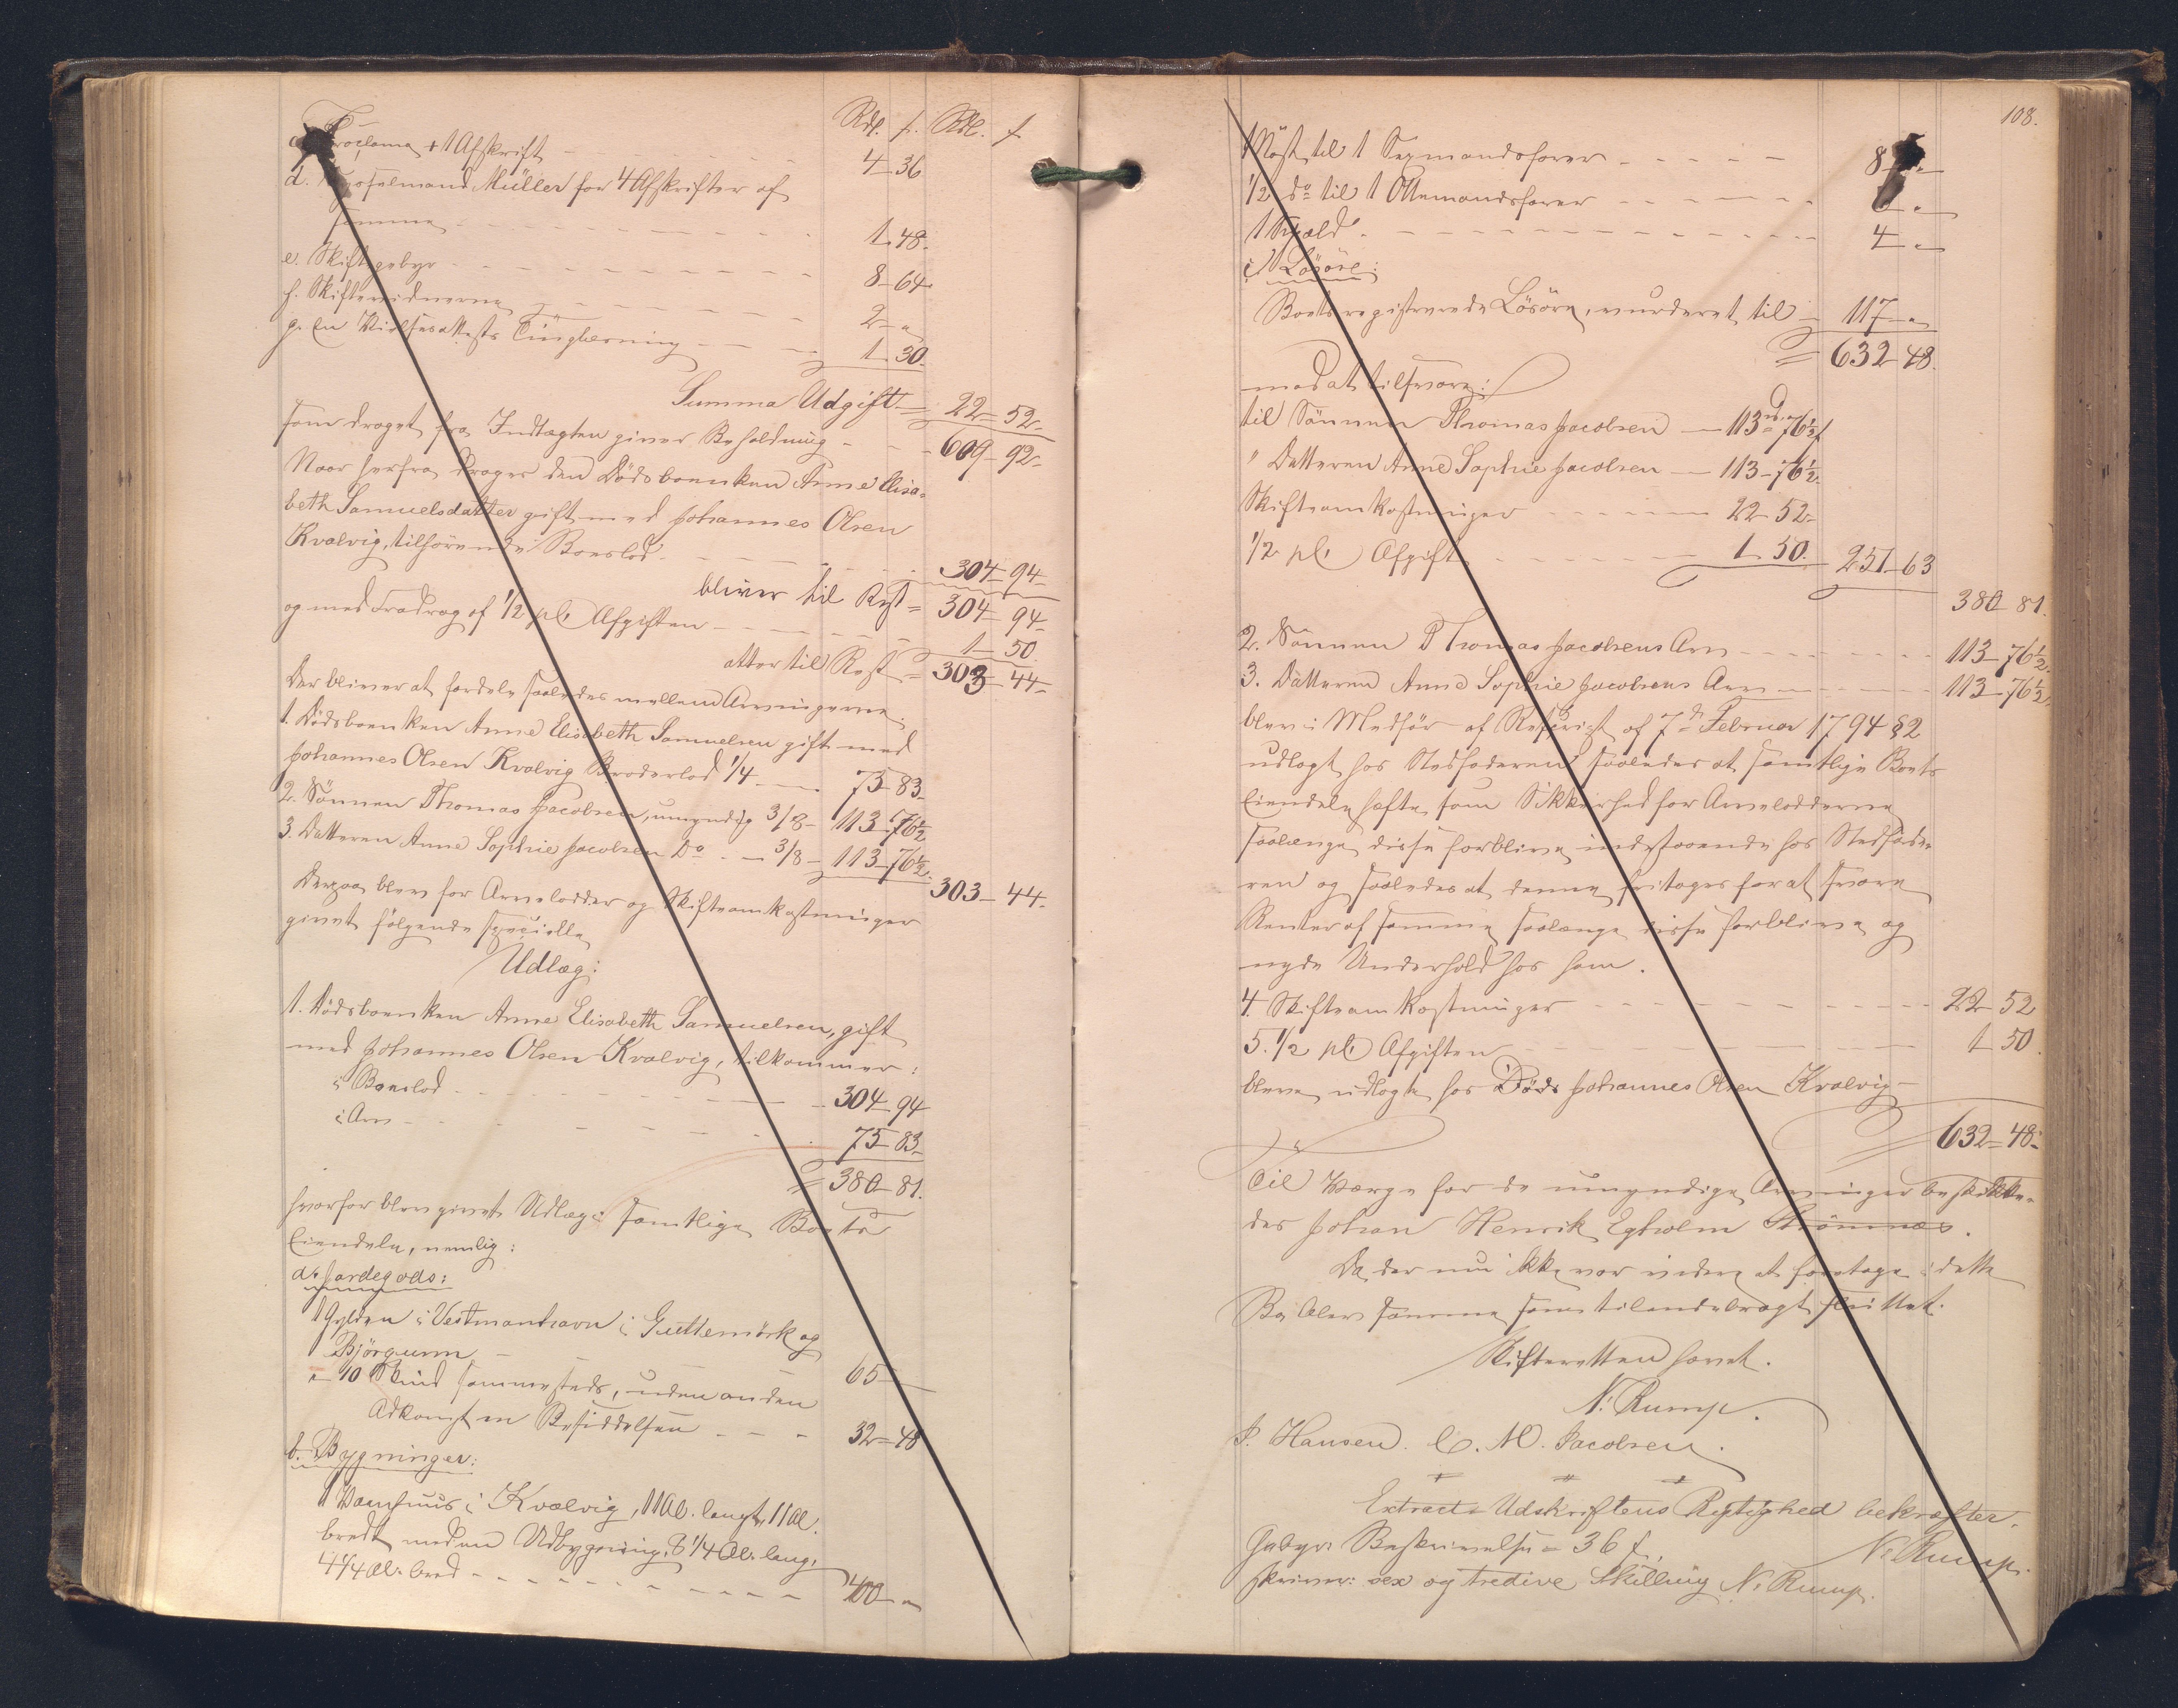 Rdl. f. Rdl. f.
Proclama + 1 Afskrift - - - 4 - 36
d. Sysselmand Müller for 4 Afskrifter af
samme - - - 1 - 48.
e. Skiftegebyr - - - 8 - 64
f. Skiftevidnerne - - - 2 - "
g. En Vielsesattests Tinglæsning - - - 1 - 30.
Summa Udgift = 22 = 52.
som draget fra Indtægten giver Beholdning - - 609 - 92.
Naar herfra drages den Dödsboenken Anne Elisa-
beth Samuelsdatter gift med Johannes Olsen
Kvalvig, tilförende Boeslod - - - 304 - 94.
bliver til Rest = 304 - 94.
og med Fradrag af 1/2 pCt Afgiften - - - 1 - 50.
atter til Rest = 303 - 44.
Der bliver at fordele saaledes mellem Arvingerne:
1. Dödsboenken Anne Elisabeth Samuelsen gift med
Johannes Olsen Kvalvig Broderlod 1/4 - - 75 - 83.
2. Sönnen Thomas Jacobsen, umyndig 3/8 - 113 - 76 1/2
3. Datteren Anne Sophie Jacobsen Do - - 3/8 - 113 - 76 1/2.
303 - 44.
Derpaa blev for Arvelodder og Skifteomkostninger
givet fölgende specielle
Udlæg:
1. Dödsboenken Anne Elisabeth Samuelsen, gift
med Johannes Olsen Kvalvig, tilkommer:
i Boeslod - - - 304 - 94
i Arv - - - 75 - 83.
= 380 - 81.
hvorfor blev givet Udlæg i samtlige Boets
Eiendele, nemlig:
a. Jordegods:
1 Gylden i Vestmanhavn i Guttemörk og
Björgunn - - - 65 -
" 10 Skind sammesteds, uden anden
Adkomst en Besiddelsen - - - 32 = 48
b. Bygninger:
1 Vaanhuus i Kvalvig, 11 Al. langt, 11 Al.
bredt med en Udbygning, 8 1/4 Al. lang,
4 1/4 Al. bred - - - 400 - "
108.
1 Nöst til 1 Sexmandsfarer - - - 8 - "
1/2 do til 1 Ottemandsfarer - - - "
1 - - - 4 - "
c. Lösöre:
Boets registrerede Lösöre, vurderet til - 117 - "
= 632 - 48.
mod at tilsvare:
til Sönnen Thomas Jacobsen - 113 rd. 76 1/2 f
" Datteren Anne Sophie Jacobsen - 113 - 76 1/2.
Skifteomkostninger - - - 22 - 52.
1/2 pCt Afgift - - - 1 - 50. 251 - 63
380 - 81.
2. Sönnen Thomas Jacobsens Arv - - - 113 - 76 1/2.
3. Datteren Anne Sophie Jacobsens Arv - - - 113 - 76 1/2,
blev i Medför af Rescript af 7de Februar 1794 § 2
udlagt hos Stedfaderen saaledes at samtlige Boets
Eiendele hæfte som Sikkerhed for Arvelodderne,
saalænge disse forblive indestaaende hos Stedfade-
ren og saaledes at denne fritages for at svare
Renter af samme saalænge disse forblive og
nyde Underhold hos ham.
4. Skifteomkostninger - - - 22 - 52
5. 1/2 pCt Afgiften - - - 1 - 50.
bleve udlagte hos Johannes Olsen Kvalvig -
632 - 48.
Til Værge for de umyndige Arvinger beskikke-
des Johan Henrik Egholm Strömnæs.
Da der nu ikke var videre at foretage i dette
Bo blev samme som tilendebragt sluttet.
Skifteretten hævet.
N. Rump.
P. Hansen. C. M. Jacobsen.
Extract Udskriftens Rigtighed bekræfter.
N. Rump.
Gebyr: Beskrivelse = 36 f,
skriver: sex og tredive Skilling N. Rump.